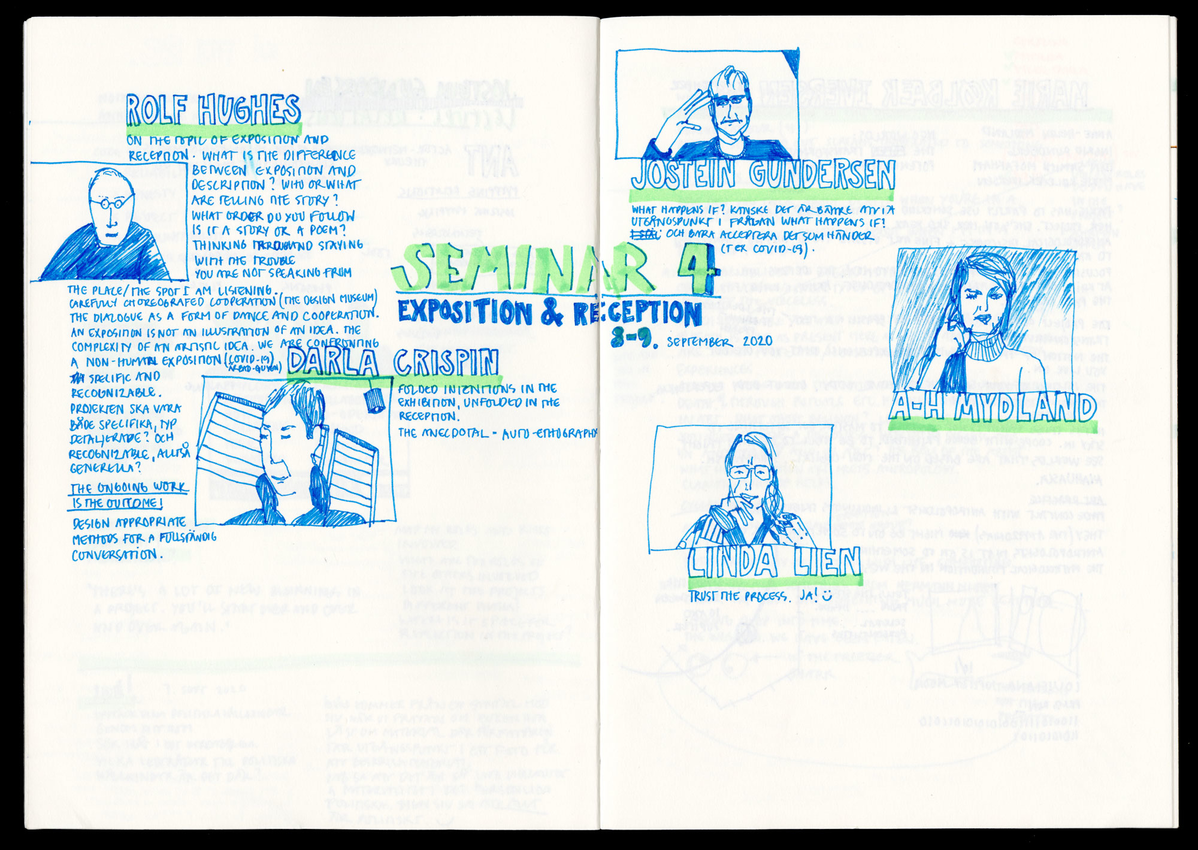 ROLF HUGHES
ON THE TOPIC OF EXPOSITION AND
RECEPTION. WHAT IS THE DIFFERENCE
BETWEEN EXPOSITION AND
DESCRIPTION? WHO OR WHAT
ARE TELLING THE STORY?
WHAT ORDER DO YOU FOLLOW
IS IT A STORY OR A POEM?
THINKING THROUGH AND STAYING
WITH THE TROUBLE
YOU ARE NOT SPEAKING FROM
THE PLACE/THE SPOT I AM LISTENING.
CAREFULLY CHOREOGRAFED COOPERATION (THE DESIGN MUSEUM)
THE DIALOGUE AS A FORM OF DANCE AND COOPERATION.
AN EXPOSITION IS NOT AN ILLUSTRATION OF AN IDEA. THE
COMPLEXITY OF AN ARTISTIC IDEA. WE ARE CONFRONTING
A NON-HUMAN EXPOSITION (COVID-19)
SPECIFIC AND
RECOGNIZABLE.
PROJEKTEN SKA VARA
BÅDE SPECIFIKA, TYP
DETALJERADE? OCH
RECOGNIZABLE, ALLTSÅ
GENERELLA?
THE ONGOING WORK
IS THE OUTCOME!
DESIGN APPROPRIATE
METHODS FOR A FULLSTÄNDIG
CONVERSATION.
DARLA CRISPIN
FOLDED INTENTIONS IN THE
EXHIBITION, UNFOLDED IN THE
RECEPTION.
THE ANECDOTAL - AUTO-ETHOGRAPHY
SEMINAR 4
EXPOSITION & RECEPTION
8-9. SEPTEMBER 2020
JOSTEIN GUNDERSEN
WHAT HAPPENS IF? KANSKE DET ÄR BÄTTRE ATT TA
UTGÅNGSPUNKT I FRÅGAN WHAT HAPPENS IF?
OCH BARA ACCEPTERA DET SOM HÄNDER
(T EX COVID-19).
A-H MYDLAND
LINDA LIEN
TRUST THE PROCESS. JA! ☺